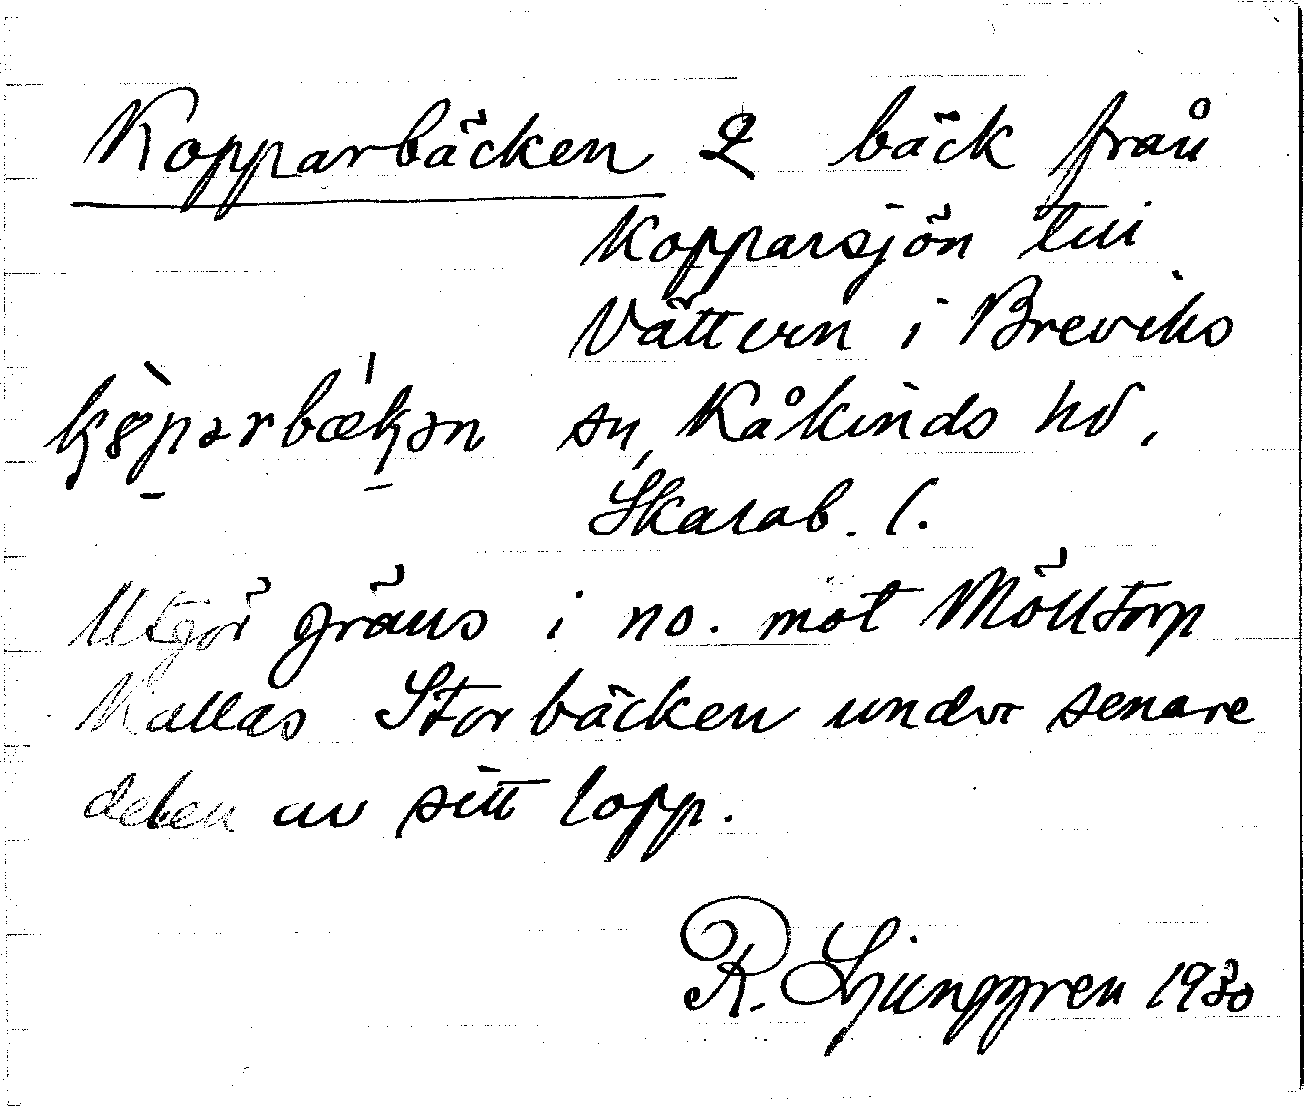 Kopparbäcken 2 bäck från
Kopparsjön till
Vättern i Breviks
sn, Kåkinds hd,
Skarab. l.
Utgör gräns i no. mot Mölltorp
Kallas Storbäcken under senare
delen av sitt lopp.
R. Ljunggren 1930